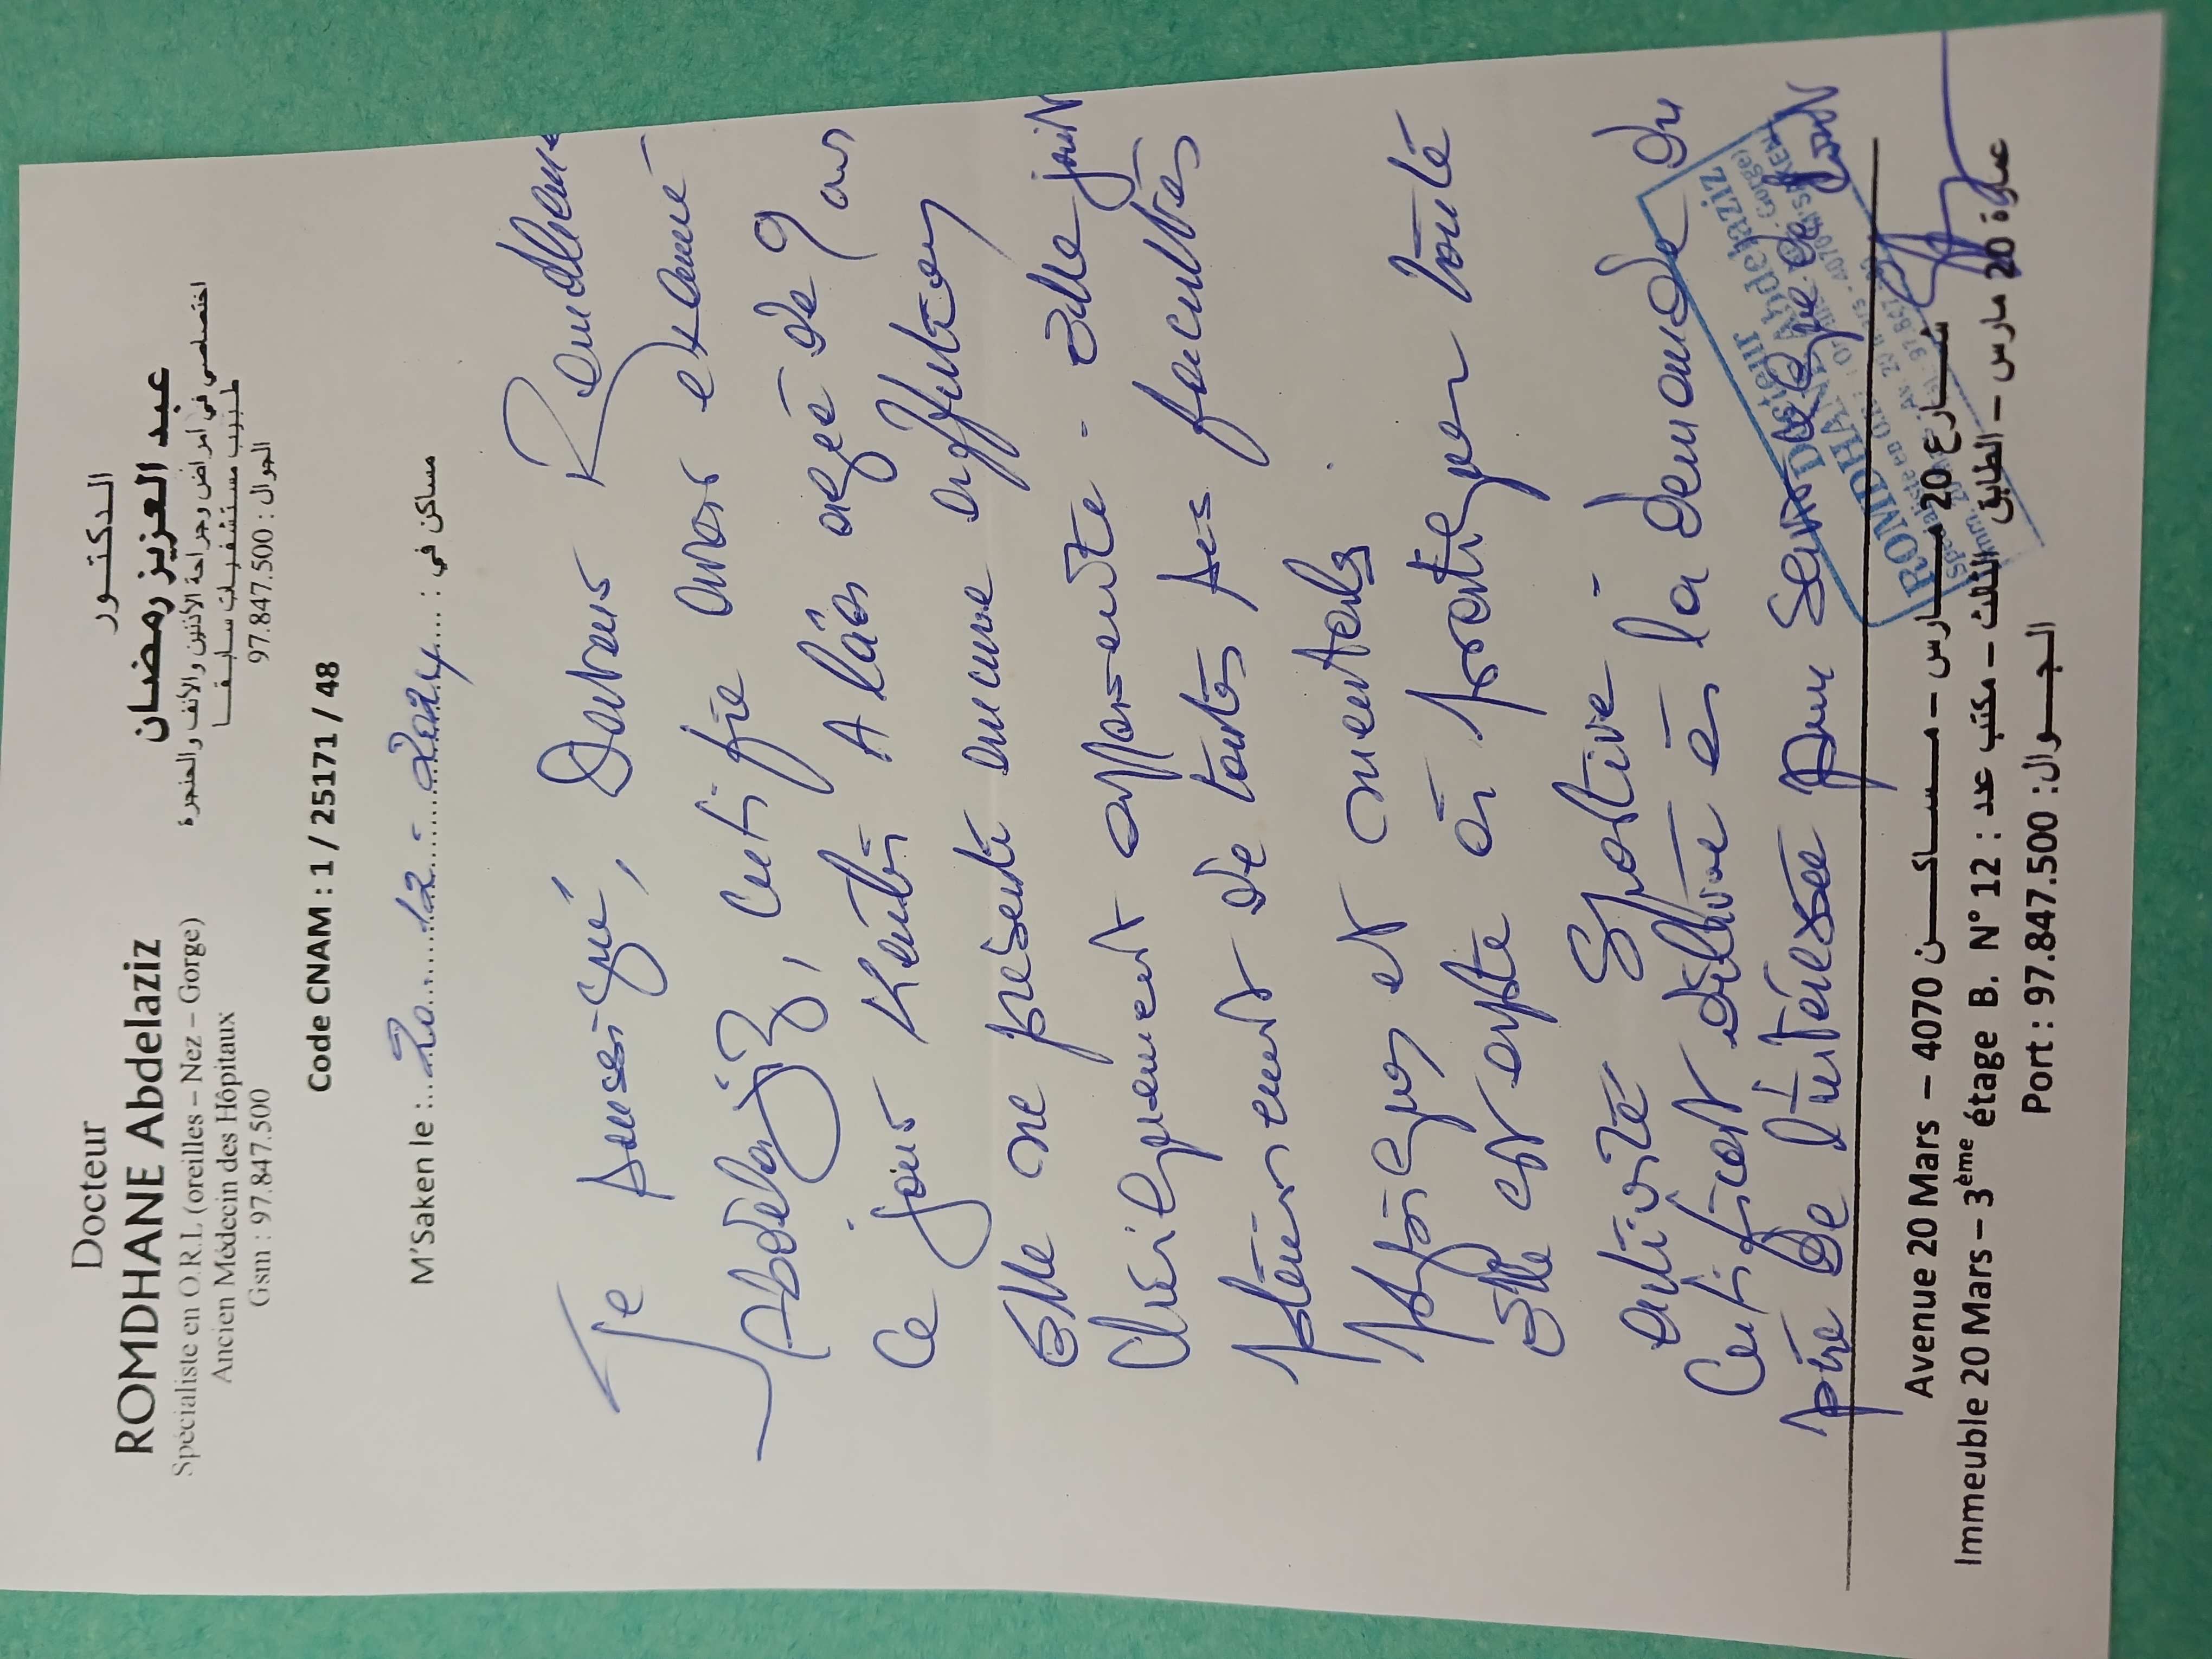 Docteur
ROMDHANE Abdelaziz
Spécialiste en O.R.L (oreilles – Nez – Gorge)
Ancien Médecin des Hôpitaux
Gsm : 97.847.500
الدكتور
عبد العزيز رمضان
اختصاصي في أمراض وجراحة الأذنين والأنف والحنجرة
طبيب مستشفيات سابقا
الجوال : 97.847.500
Code CNAM : 1 / 25171 / 48
M'Saken le : 20 12 2024 مساكن في :
Je sousigné, Docteur Romdhane
Abdelaziz, certifie avoir examiné
ce jour Alaa agée de 9 ans
Elle ne presente aucune affection
Cliniquement apparente. Elle jouit
pleinement de toutes ses facultés
physiques et mentales
Elle est apte à pratiquer toute
activité Sportive
Certificat délivré à la demande du
père de l'intéressée pour servir de de droit
Docteur
ROMDHANE Abdelaziz
Avenue 20 Mars – 4070 شارع 20 مارس – مساكن
Immeuble 20 Mars – 3ème étage B. N° 12 : عمارة 20 مارس – الطابق الثالث – مكتب عدد
Port : 97.847.500 :الجوال